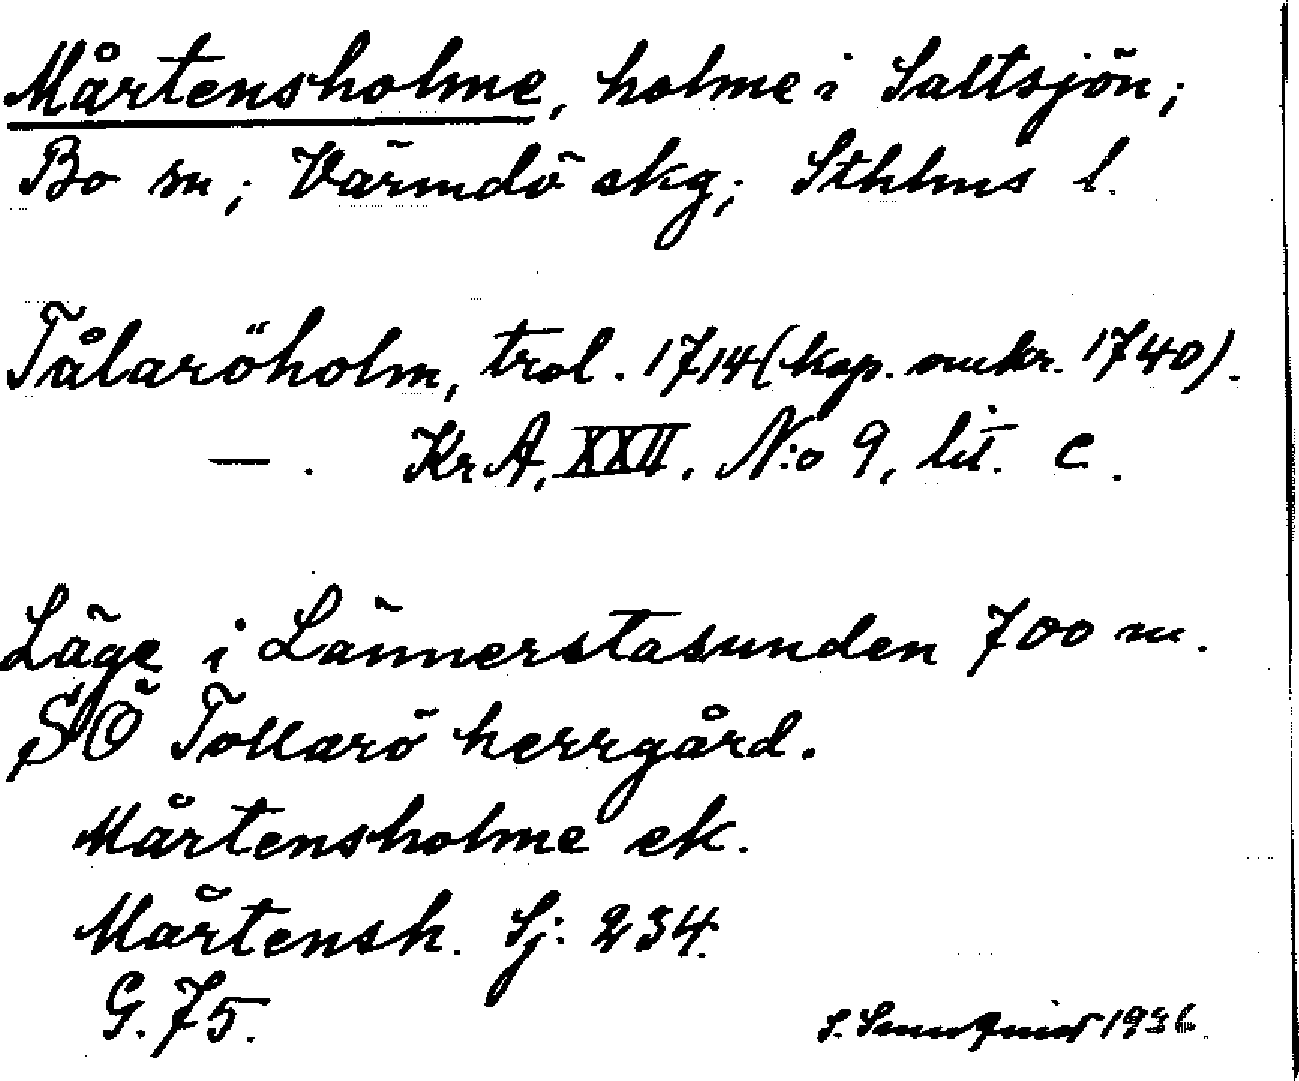 Mårtensholme, holme i Saltsjön;
Bo sn; Värmdö skg; Sthlms l.
Tålaröholm, trol. 1714 (kop. omkr. 1740).
— . KrA, XXII. N:o 9, lit. C.
Läge i Lännerstasunden 700 m.
SÖ Tollarö herrgård.
Mårtensholme ek.
Mårtensh. Sj: 234.
G. 75.
S. 1936.